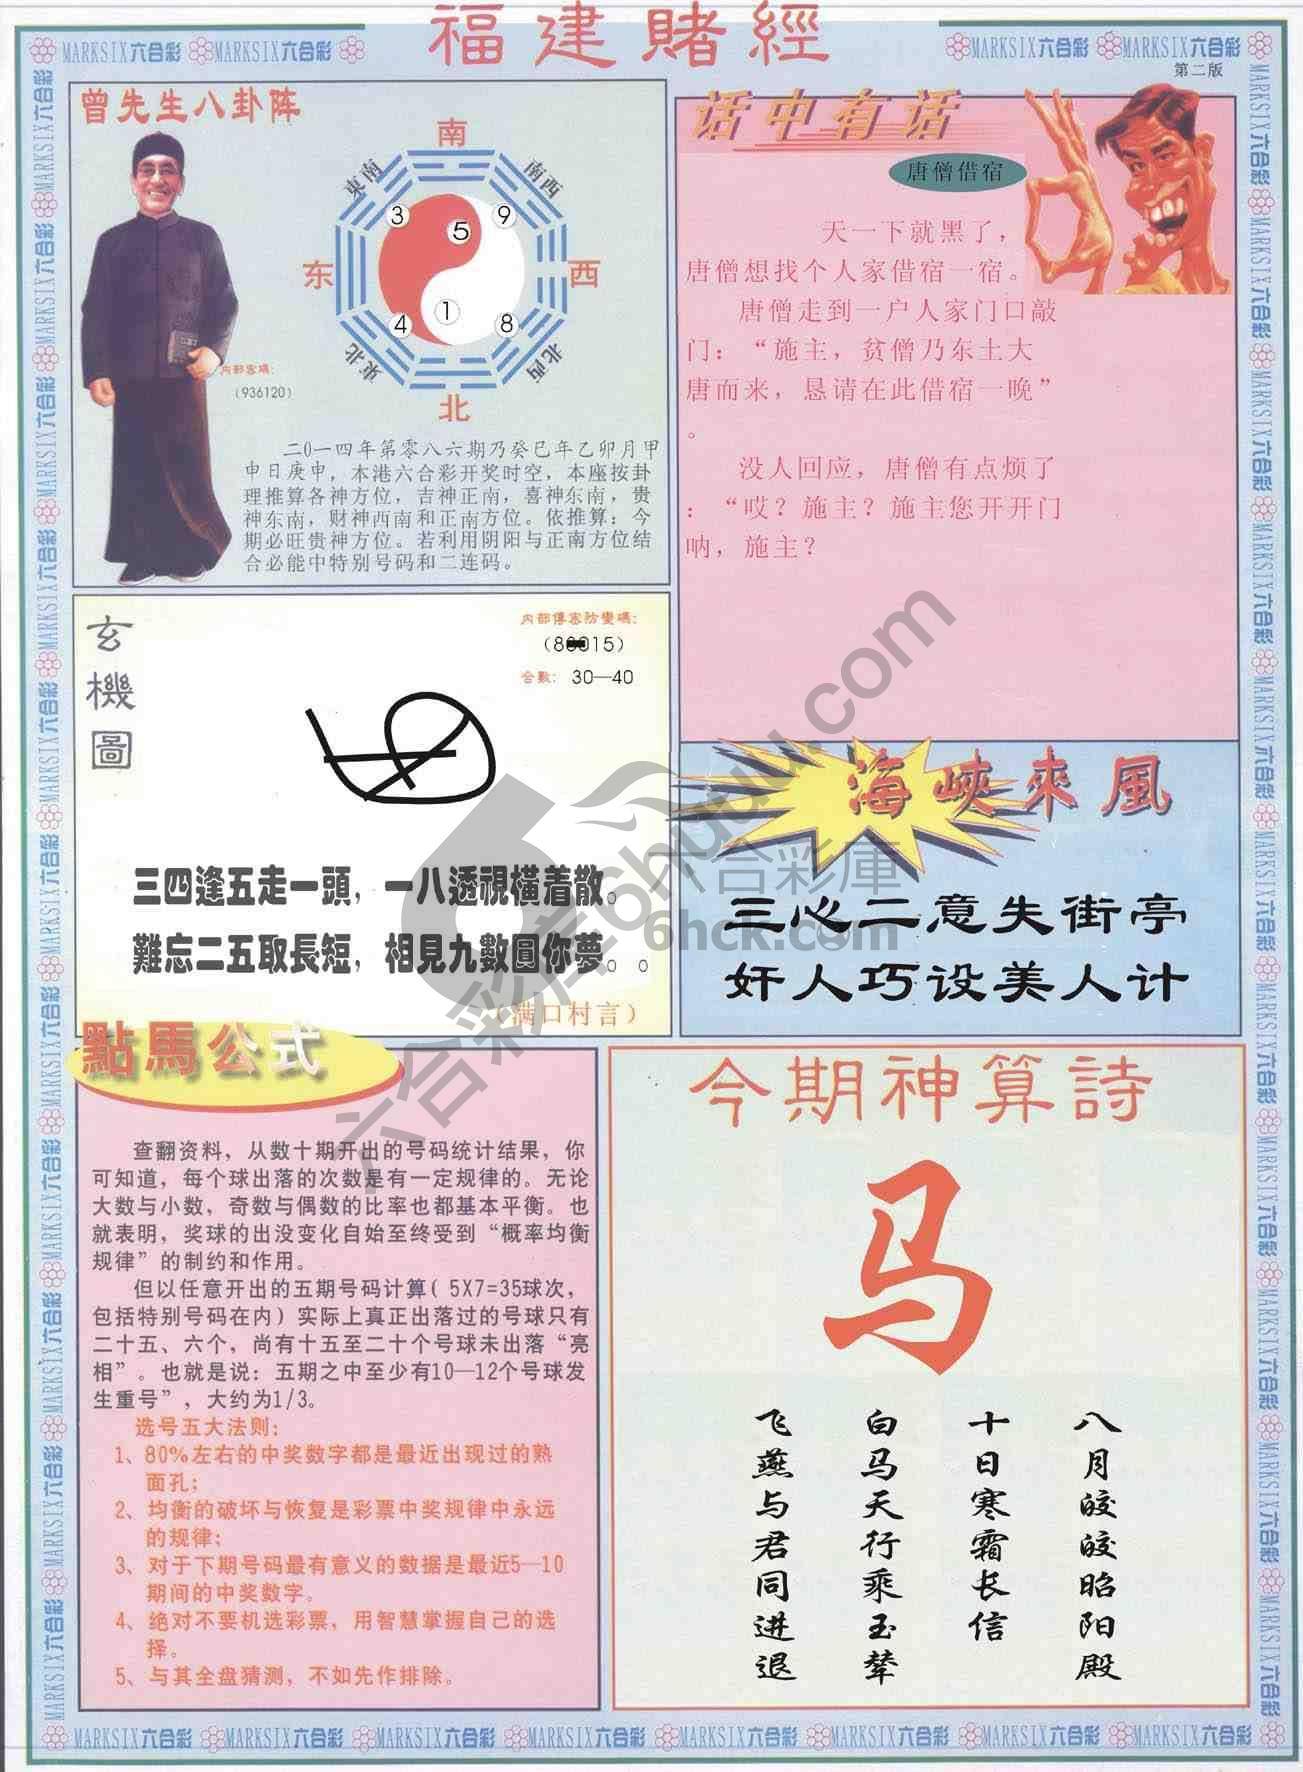 福建賭經
MARKSIX六合彩 MARKSIX六合彩
MARKSIX六合彩 MARKSIX六合彩
第二版
曾先生八卦阵
南
東南
南西
3
5
9
东
西
1
4
8
東北
北西
北
内部密碼:
(936120)
二0一四年第零八六期乃癸巳年乙卯月甲
申日庚申，本港六合彩开奖时空，本座按卦
理推算各神方位，吉神正南，喜神东南，贵
神东南，财神西南和正南方位。依推算：今
期必旺贵神方位。若利用阴阳与正南方位结
合必能中特别号码和二连码。
话中有话
唐僧借宿
天一下就黑了，
唐僧想找个人家借宿一宿。
唐僧走到一户人家门口敲
门：“施主，贫僧乃东土大
唐而来，恳请在此借宿一晚”
。
没人回应，唐僧有点烦了
：“哎？施主？施主您开开门
呐，施主？
玄機圖
内部傳密防變碼:
合數: 30—40
三四逢五走一頭，一八透視橫着散。
難忘二五取長短，相見九數圓你夢。。
（满口村言）
海峽來風
三心二意失街亭
奸人巧设美人计
六合彩庫
6hck.com
六合彩库6hhuu.com
點馬公式
查翻资料，从数十期开出的号码统计结果，你
可知道，每个球出落的次数是有一定规律的。无论
大数与小数，奇数与偶数的比率也都基本平衡。也
就表明，奖球的出没变化自始至终受到“概率均衡
规律”的制约和作用。
但以任意开出的五期号码计算( 5X7=35球次，
包括特别号码在内）实际上真正出落过的号球只有
二十五、六个，尚有十五至二十个号球未出落“亮
相”。也就是说：五期之中至少有10—12个号球发
生重号”，大约为1/3。
选号五大法则:
1、80%左右的中奖数字都是最近出现过的熟
面孔;
2、均衡的破坏与恢复是彩票中奖规律中永远
的规律;
3、对于下期号码最有意义的数据是最近5—10
期间的中奖数字。
4、绝对不要机选彩票，用智慧掌握自己的选
择。
5、与其全盘猜测，不如先作排除。
今期神算詩
马
八月皎皎昭阳殿
十日寒霜长信
白马天行乘玉辇
飞燕与君同进退
MARKSIX六合彩 MARKSIX六合彩 MARKSIX六合彩 MARKSIX六合彩 MARKSIX六合彩 MARKSIX六合彩 MARKSIX六合彩 MARKSIX六合彩